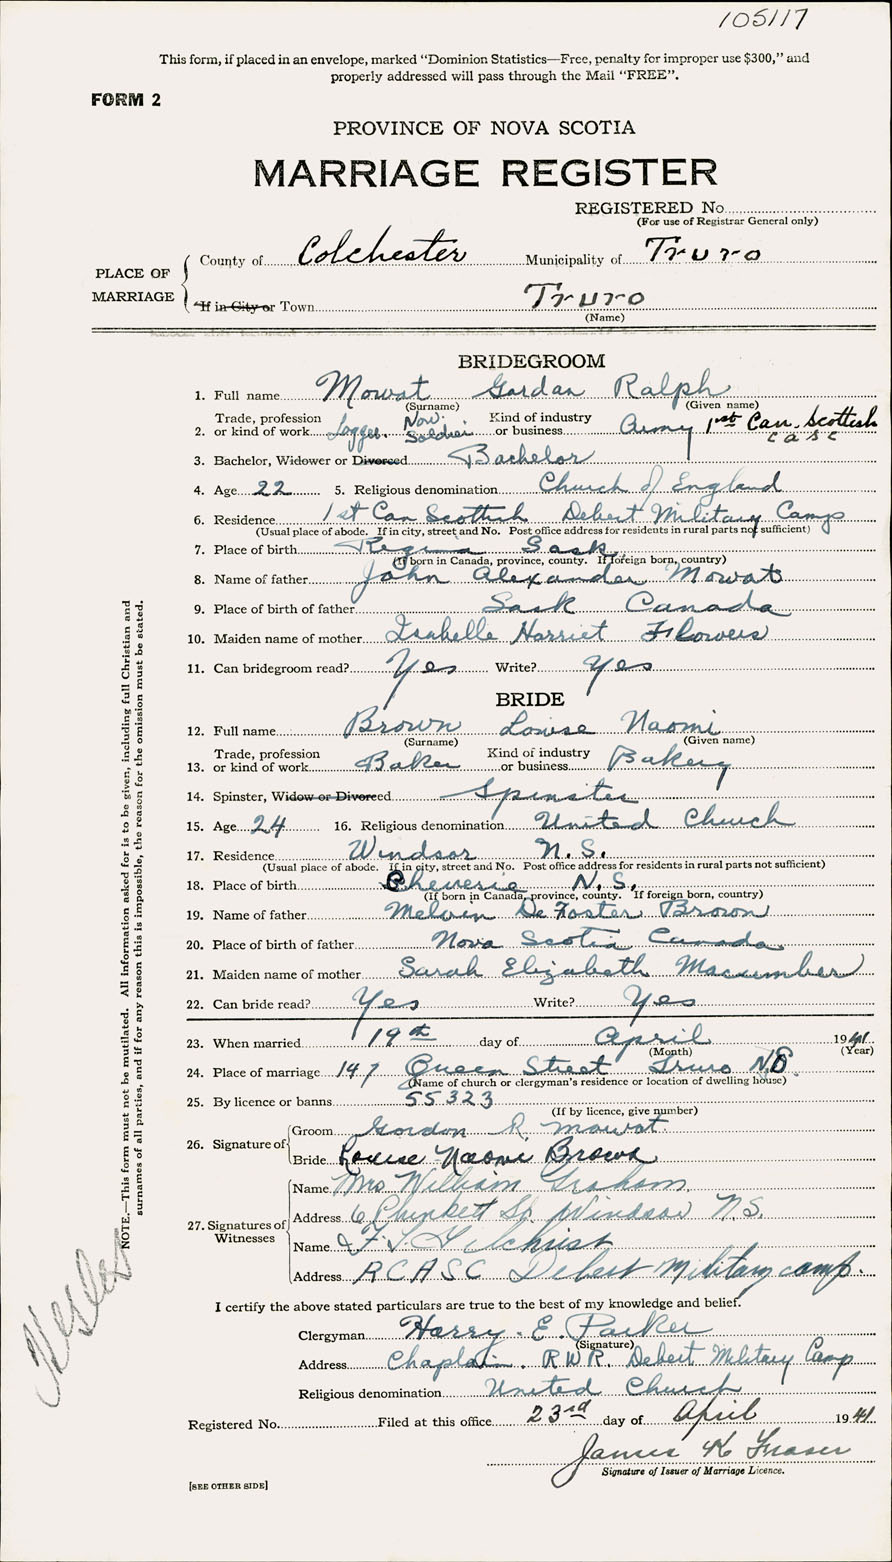 105117
This form, if placed in an envelope, marked "Dominion Statistics—Free, penalty for improper use $300," and
properly addressed will pass through the Mail "FREE".
FORM 2
PROVINCE OF NOVA SCOTIA
MARRIAGE REGISTER
REGISTERED No.
(For use of Registrar General only)
PLACE OF MARRIAGE
County of Colchester Municipality of Truro
If in City or Town Truro
(Name)
BRIDEGROOM
1. Full name Mowat Gordan Ralph
(Surname) (Given name)
2. Trade, profession or kind of work Logger. Now. Soldier Kind of industry or business Army 1st Can. Scottish
C A S C
3. Bachelor, Widower or Divorced Bachelor
4. Age 22 5. Religious denomination Church of England
6. Residence 1st Can Scottish Debert Military Camp
(Usual place of abode. If in city, street and No. Post office address for residents in rural parts not sufficient)
7. Place of birth Regina Sask.
(If born in Canada, province, county. If foreign born, country)
8. Name of father John Alexander Mowat
9. Place of birth of father Sask Canada
10. Maiden name of mother Isabelle Harriet Flowers
11. Can bridegroom read? Yes Write? Yes
BRIDE
12. Full name Brown Louise Naomi
(Surname) (Given name)
13. Trade, profession or kind of work Baker Kind of industry or business Bakery
14. Spinster, Widow or Divorced Spinster
15. Age 24 16. Religious denomination United Church
17. Residence Windsor N.S.
(Usual place of abode. If in city, street and No. Post office address for residents in rural parts not sufficient)
18. Place of birth Cheverie N.S.
(If born in Canada, province, county. If foreign born, country)
19. Name of father Melvin De Foster Brown
20. Place of birth of father Nova Scotia Canada
21. Maiden name of mother Sarah Elizabeth Macumber
22. Can bride read? Yes Write? Yes
23. When married 19th day of April 1941
(Month) (Year)
24. Place of marriage 147 Queen Street Truro N.S.
(Name of church or clergyman's residence or location of dwelling house)
25. By licence or banns 55323
(If by licence, give number)
26. Signature of
Groom Gordon R. Mowat.
Bride Louise Naomi Brown
27. Signatures of Witnesses
Name Mrs William Graham
Address 6 Plunkett St. Windsor N.S.
Name F. L. Gilchrist
Address RCASC Debert Military camp.
I certify the above stated particulars are true to the best of my knowledge and belief.
Clergyman Harry. E. Parker
(Signature)
Address Chaplain. R.W.R. Debert Military Camp
Religious denomination United Church
Registered No. Filed at this office 23rd day of April 1941.
James K Fraser
Signature of Issuer of Marriage Licence.
[SEE OTHER SIDE]
NOTE.—This form must not be mutilated. All information asked for is to be given, including full Christian and
surnames of all parties, and if for any reason this is impossible, the reason for the omission must be stated.